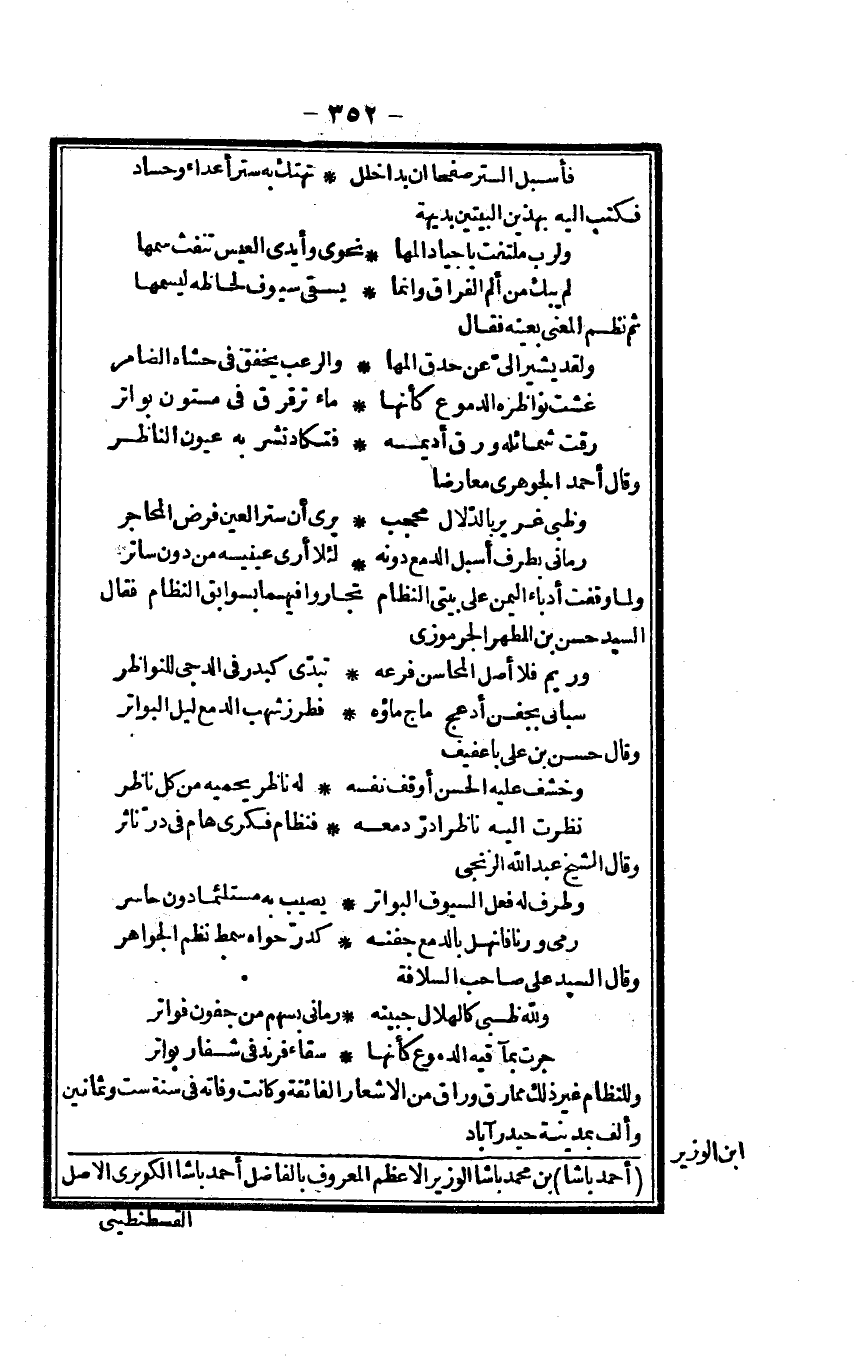 - ٣٥٢ -
فأسبل الستر صفحا ان بدا خلل * تهتك به ستر أعداء وحساد
فكتب اليه بهذين البيتين بديهة
ولرب ملتفت باجياد المها * نحوى وأيدى العيس تنفث سمها
لم يبك من ألم الفراق وانما * يسقى سيوف لحاظه ليسمها
ثم نظم المعنى بعينه فقال
ولقد يشير الىّ عن حدق المها * والرعب يخفق فى حشاه الضامر
غشت نواظره الدموع كأنها * ماء ترقرق فى متون بواتر
رقت شمائله ورق أديمه * فتكاد تشر به عيون الناظر
وقال أحمد الجوهرى معارضا
وظبى غرير بالدّلال محجب * يرى أن ستر العين فرض المحاجر
رمانى بطرف أسبل الدمع دونه * لئلا أرى عينيه من دون ساتر
ولما وقفت أدباء اليمن على بيتى النظام تجاروا فيهما بسوابق النظام فقال
السيد حسن بن المطهر الجرموزى
وريم فلا أصل المحاسن فرعه * تبدّى كبدر فى الدجى للنواظر
سبانى بجفن أدعج ماج ماؤه * فطرز شهب الدمع ليل البواتر
وقال حسن بن على باعفيف
وخشف عليه الحسن أوقف نفسه * له ناظر يحميه من كل ناظر
نظرت اليه ناظرا درّ دمعه * فنظام فكرى هام فى درّ ناثر
وقال الشيخ عبد الله الزنجى
وطرف له فعل السيوف البواتر * يصيب به مستلئما دون حاسر
رمى ورنا فانهل بالدمع جفنه * كدرّ حواه سمط نظم الجواهر
وقال السيد على صاحب السلافة
ولله ظبى كالهلال جبينه * رمانى بسهم من جفون فواتر
جرت بمآ قيه الدموع كأنها * سقاء فرند فى شفار بواتر
وللنظام غير ذلك مما رق وراق من الاشعار الفائقة وكانت وفاته فى سنة ست وثمانين
وألف بمدينة حيدرآباد
ابن الوزير
(أحمد باشا) بن محمد باشا الوزير الاعظم المعروف بالفاضل أحمد باشا الكوبرى الاصل
القسطنطينى